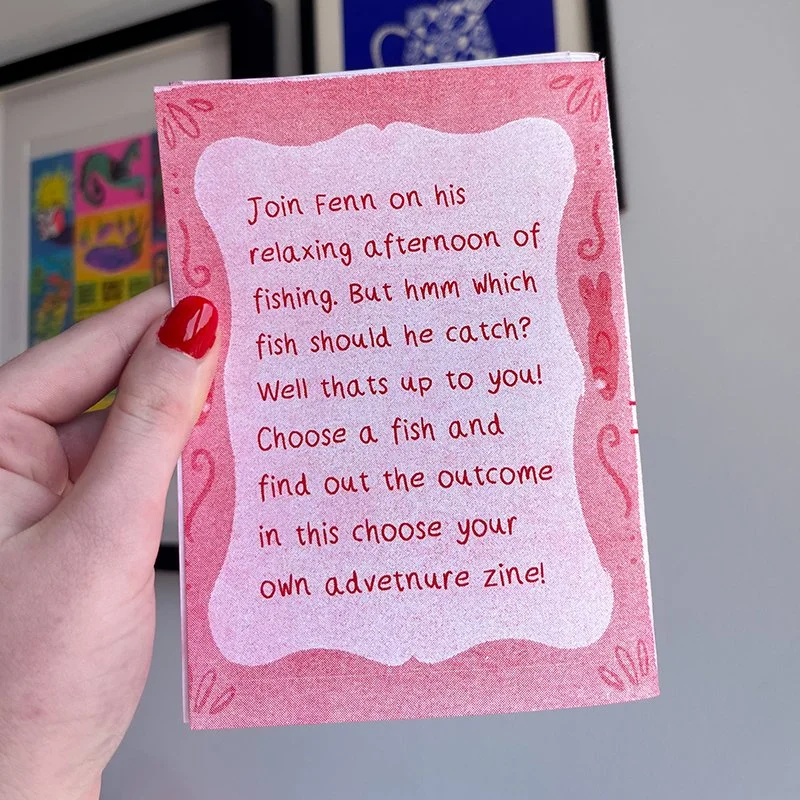 Join Fenn on his
relaxing afternoon of
fishing. But hmm which
fish should he catch?
Well thats up to you!
Choose a fish and
find out the outcome
in this choose your
own advetnure zine!